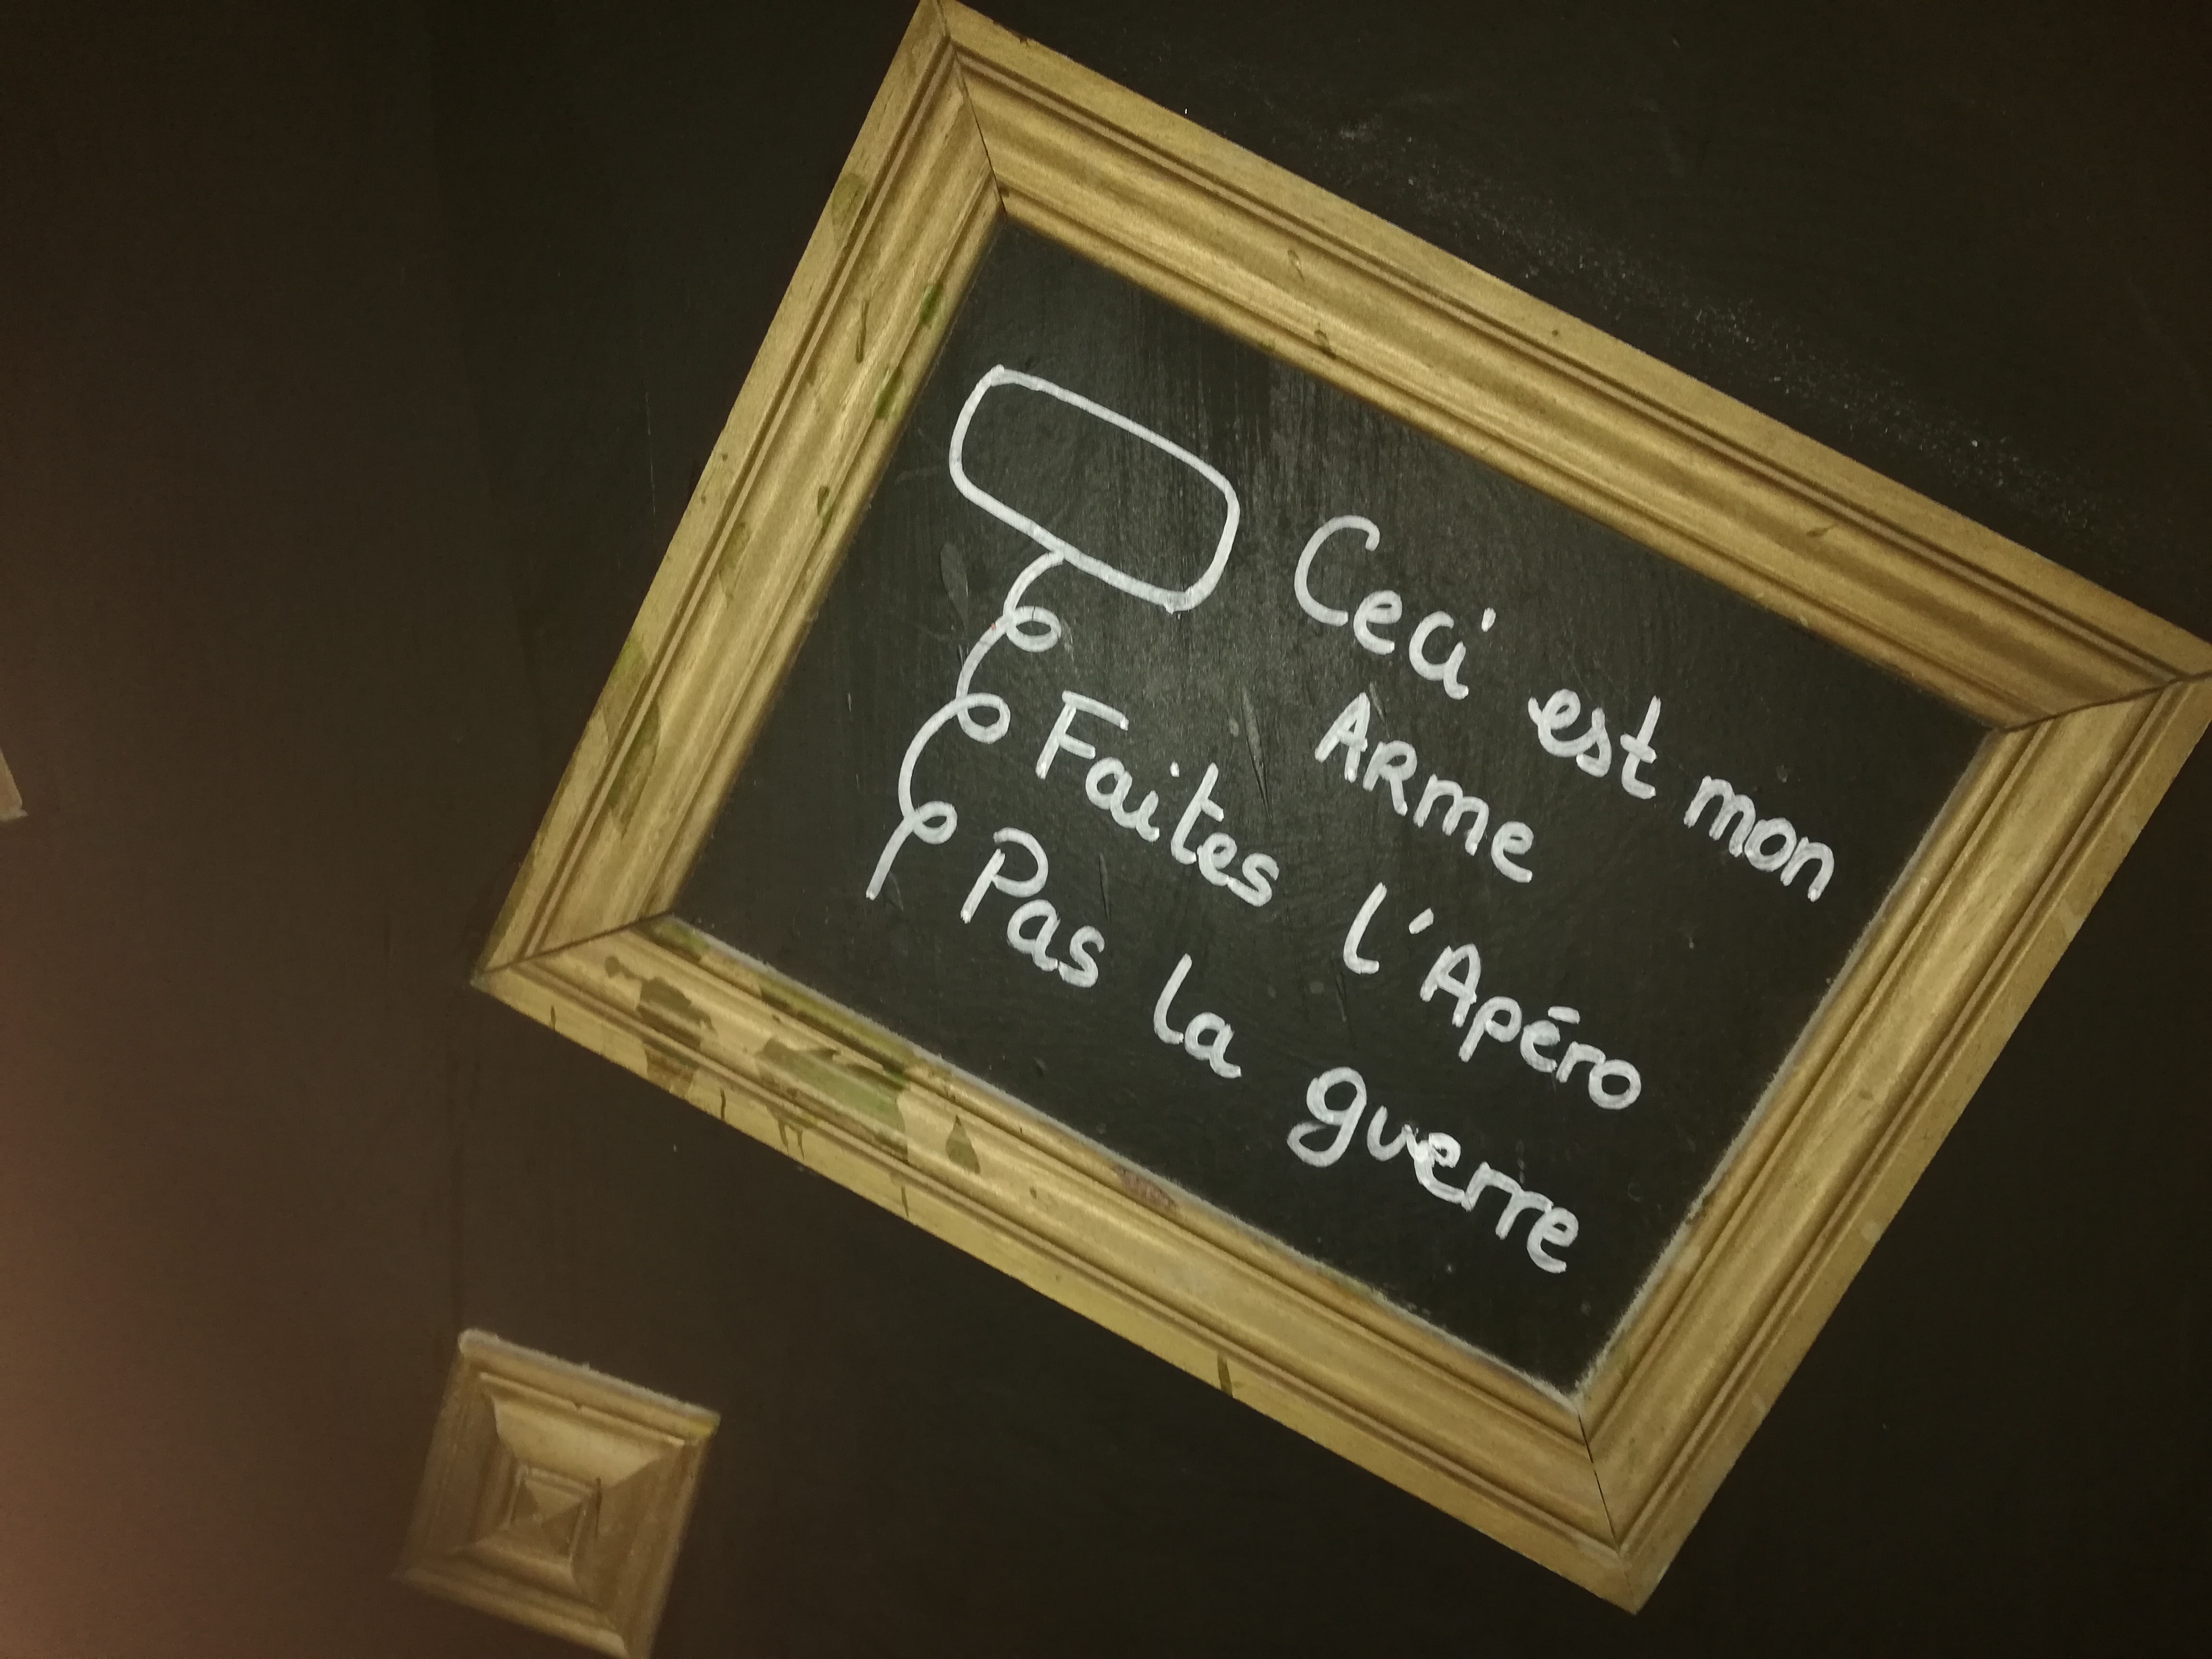 Ceci est mon
ARme
Faites l'Apéro
Pas la guerre